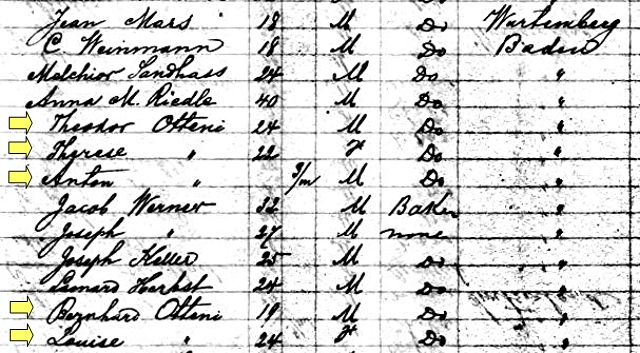 Jean Mars 18 M Do Wurtemberg
C Weinmann 18 M Do Baden
Melchior Sandhass 24 M Do "
Anna M. Riedle 40 M Do "
Theodor Otteni 24 M Do "
Therese " 22 F Do "
Anton " 9/m M Do "
Jacob Werner 32 M Baker "
Joseph " 27 M none "
Joseph Keller 25 M Do "
Leonard Herbst 24 M Do "
Bernhard Otteni 19 M Do "
Louise " 24 F Do "